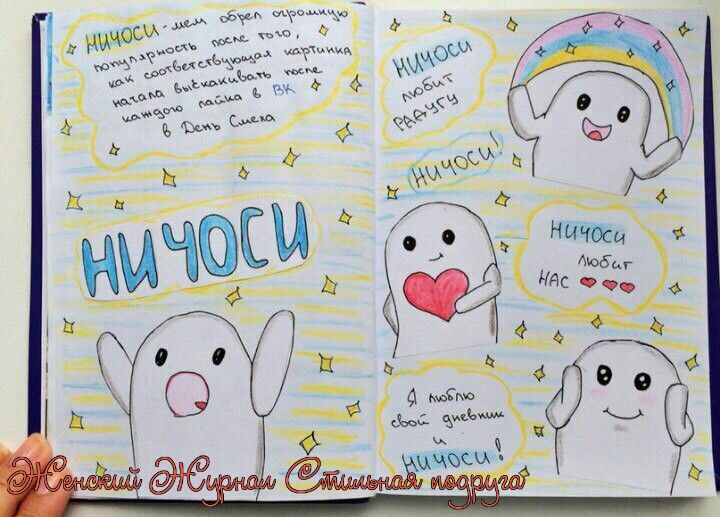 НИЧОСИ - мем обрел огромную
популярность после того,
как соответствующая картинка
начала выскакивать после
каждого лайка в ВК
в День Смеха
НИЧОСИ
НИЧОСИ
любит
РАДУГУ
НИЧОСИ!
НИЧОСИ
любит
НАС
Я люблю
свой дневник
и
НИЧОСИ!
Женский Журнал Стильная подруга